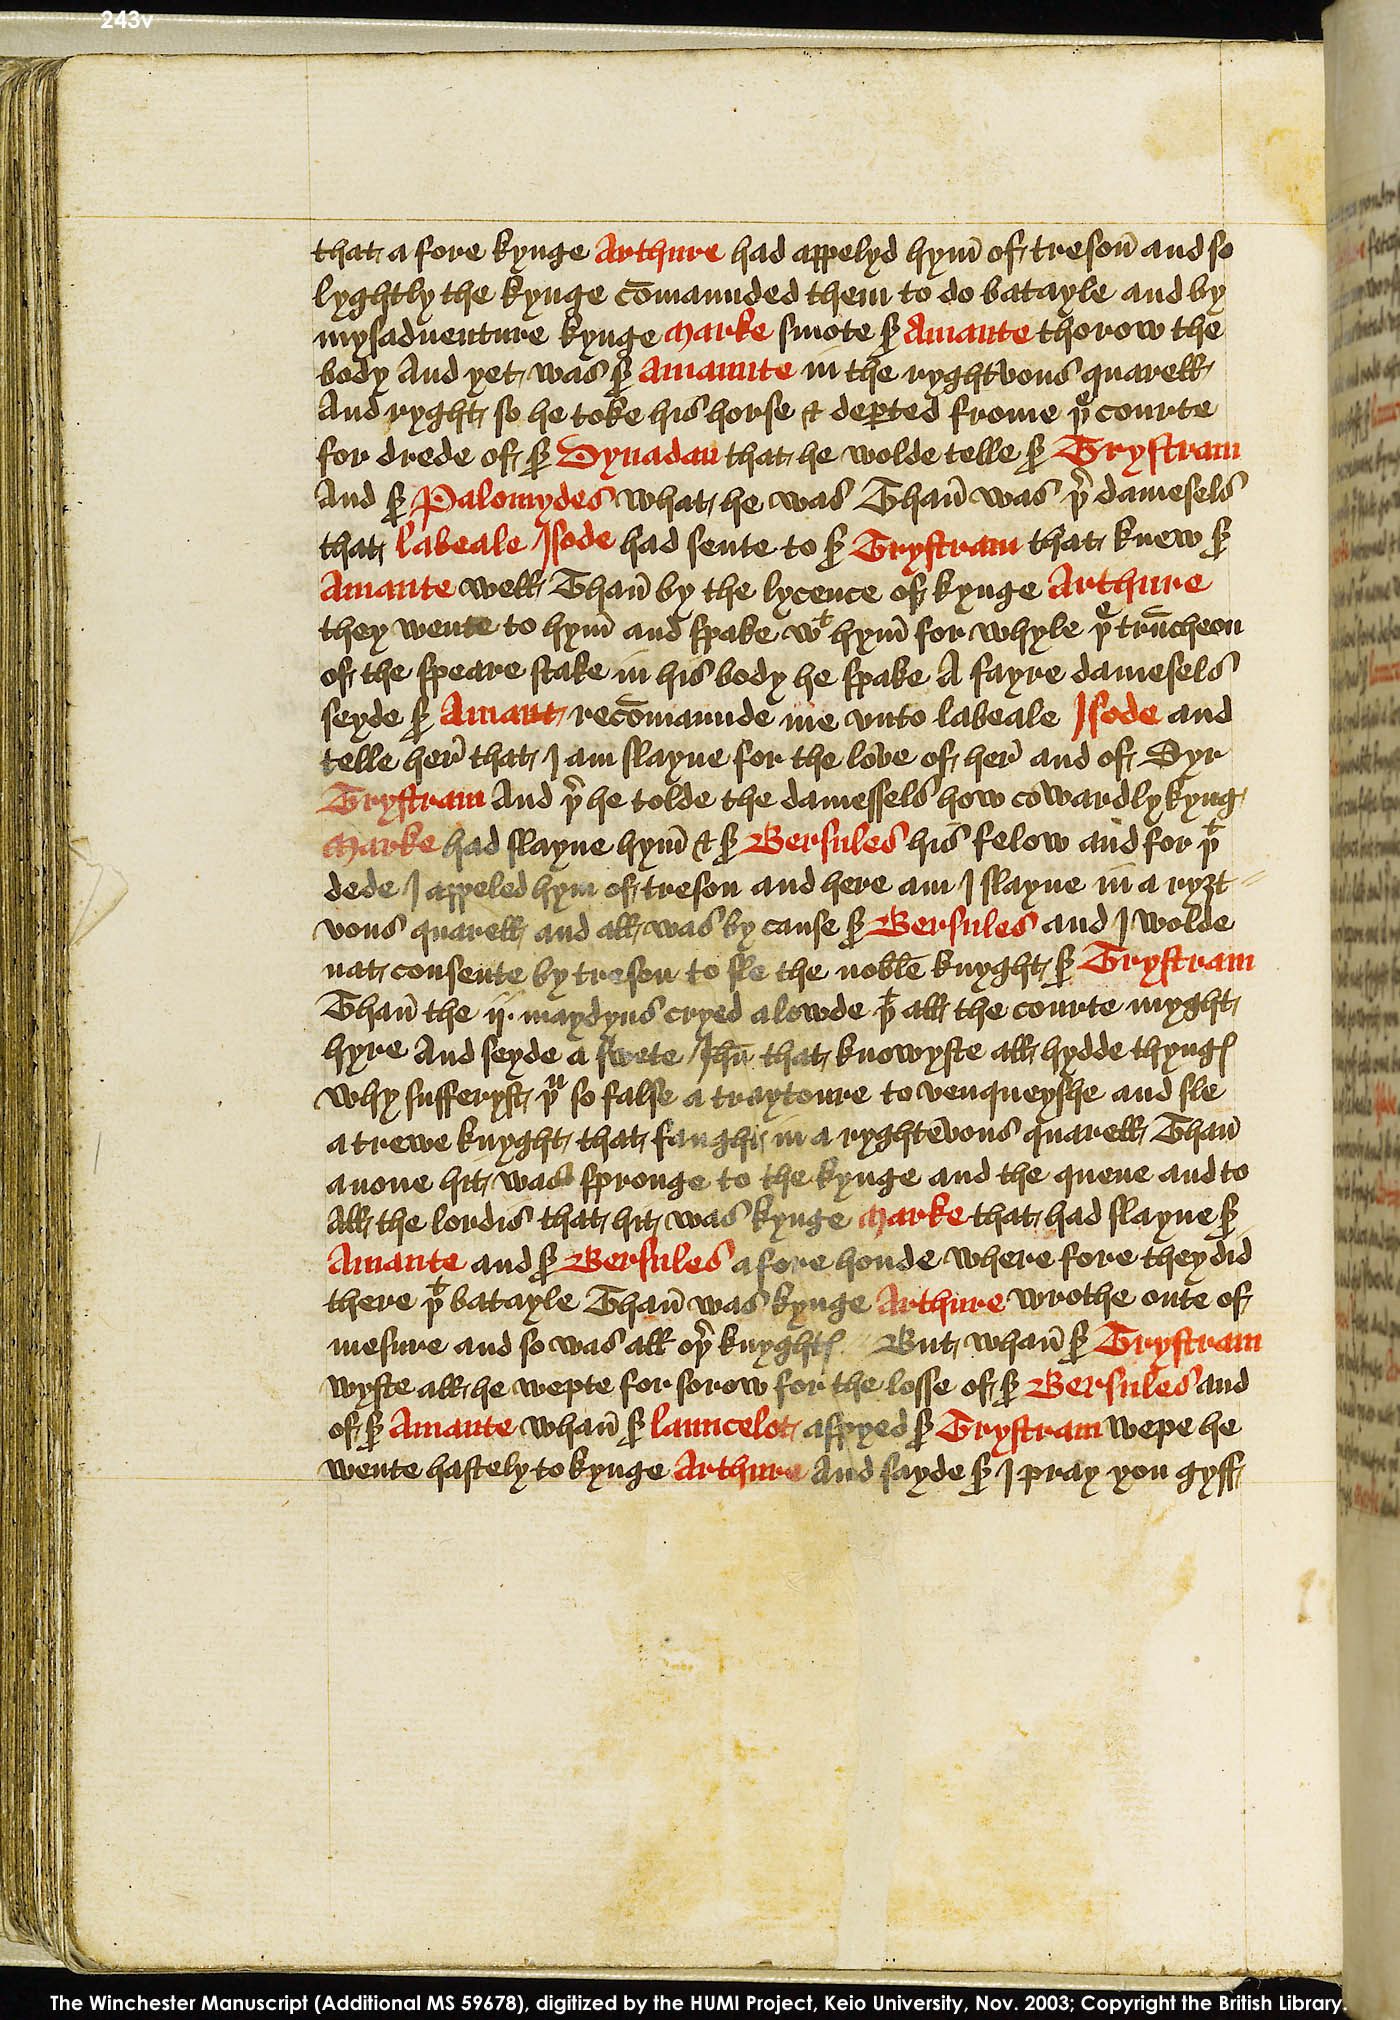 243v
that a fore kynge Arthure had appelyd hym̄ of tresoun̄ and so
lyghtly the kynge cōmaunded them to do batayle and by
mysadventure kynge Marke smote sr Amante thorow the
body And yet was sr Amaunte in the ryghtvous quarell
And ryght so he toke his horse & dep̱ted frome þe courte
for drede of sr Dynadan that he wolde telle sr Trystram
And sr Palomydes what he was Than̄ was þr damesels
that labeale Isode had sente to sr Trystram that knew sr
Amante well Than̄ by the lycence of kynge Arthure
they wente to hym̄ and spake wt hym̄ for whyle þe trūcheon
of the speare stake in his body he spake A fayre damesels
seyde sr Amant recōmaunde me vnto labeale Isode and
telle her̄ that I am slayne for the love of her̄ and of Syr
Trystram And þr he tolde the damessels how cowardly kyng
Marke had slayne hym̄ & sr Bersules his felow and for þt
dede I appeled hym of treson and here am I slayne in a ryȝt
vous quarell and all was by cause sr Bersules and I wolde
nat consente by treson to sle the noble knyght sr Trystram
Than̄ the ij. maydyns cryed a lowde þt all the courte myght
hyre And seyde a swete Ihū that knowyste all hydde thyngꝭ
why sufferyst þu so false a traytoure to venqueyshe and sle
a trewe knyght that faught in a ryghtevous quarell Than̄
anone hit was spronge to the kynge and the quene and to
All the lordis that hit was kynge Marke that had slayne sr
Amante and sr Bersules a fore honde where fore they did
there þt batayle Than̄ was kynge Arthure wrothe oute of
mesure and so was all oþr knyghtꝭ But whan̄ sr Trystram
wyste all he wepte for sorow for the losse of sr Bersules and
of sr Amante whan̄ sr launcelot aspyed sr Trystram wepe he
wente hastely to kynge Arthure And sayde sr I pray you gyff
The Winchester Manuscript (Additional MS 59678), digitized by the HUMI Project, Keio University, Nov. 2003; Copyright the British Library.